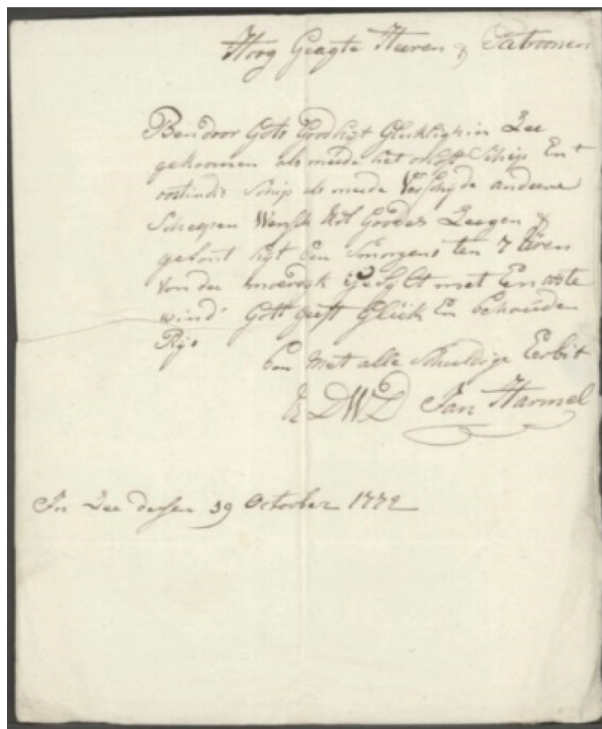 Hoog Geagte Heeren & Patroonen
Ben door Gots Goodhyt Gluklig in Zee
gekoomen als meede het Schip En
oostindis Schip als meede Verschyde andere
Scheepen Wensch Godes Zeegen &
ten 7 Uren
van de met En ooste
wind Gott geeft Glük En behouden
Rys
ben Met alle Schuldige Eerbit
UEDWD Jan Harmel
In Zee desen 29 October 1772